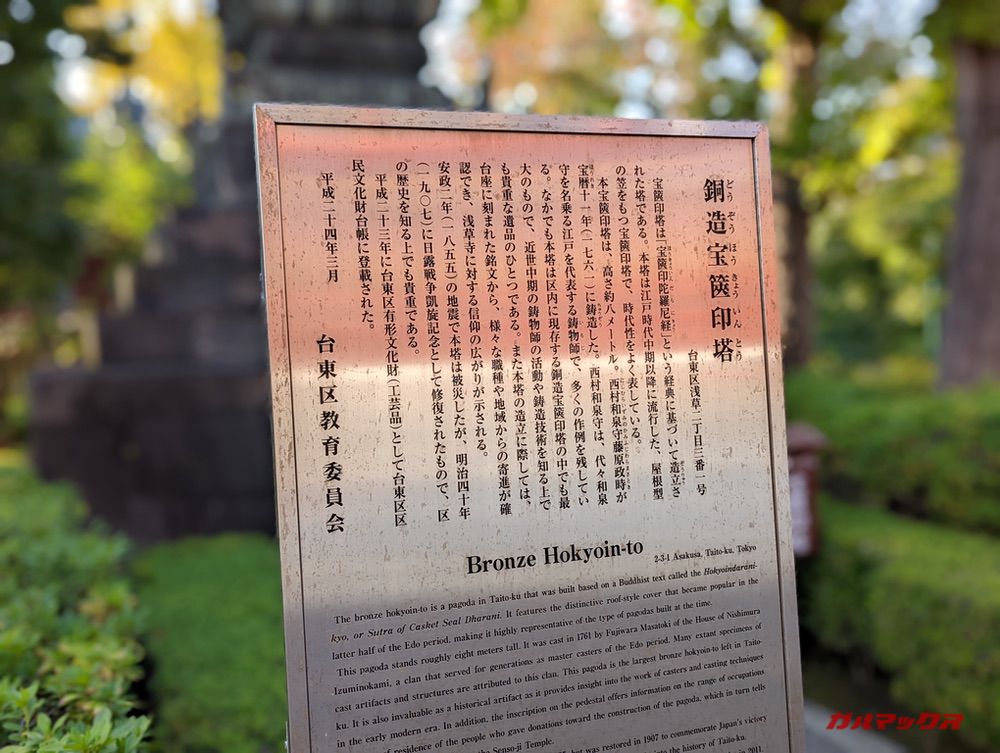 銅造宝篋印塔
どう ぞう ほう きょう いん とう
台東区浅草二丁目三番一号
宝篋印塔は「宝篋印陀羅尼経」という経典に基づいて造立さ
れた塔である。本塔は江戸時代中期以降に流行した、屋根型
の笠をもつ宝篋印塔で、時代性をよく表している。
本宝篋印塔は、高さ約八メートル。西村和泉守藤原政時が
宝暦十一年(一七六一)に鋳造した。西村和泉守は、代々和泉
守を名乗る江戸を代表する鋳物師で、多くの作例を残してい
る。なかでも本塔は区内に現存する銅造宝篋印塔の中でも最
大のもので、近世中期の鋳物師の活動や鋳造技術を知る上で
も貴重な遺品のひとつである。また本塔の造立に際しては、
台座に刻まれた銘文から、様々な職種や地域からの寄進が確
認でき、浅草寺に対する信仰の広がりが示される。
安政二年(一八五五)の地震で本塔は被災したが、明治四十年
(一九〇七)に日露戦争凱旋記念として修復されたもので、区
の歴史を知る上でも貴重である。
平成二十三年に台東区有形文化財(工芸品)として台東区区
民文化財台帳に登載された。
平成二十四年三月
台東区教育委員会
Bronze Hokyoin-to
2-3-1 Asakusa, Taito-ku, Tokyo
The bronze hokyoin-to is a pagoda in Taito-ku that was built based on a Buddhist text called the Hokyoindarani-
kyo, or Sutra of Casket Seal Dharani. It features the distinctive roof-style cover that became popular in the
latter half of the Edo period, making it highly representative of the type of pagodas built at the time.
This pagoda stands roughly eight meters tall. It was cast in 1761 by Fujiwara Masatoki of the House of Nishimura
Izuminokami, a clan that served for generations as master casters of the Edo period. Many extant specimens of
cast artifacts and structures are attributed to this clan. This pagoda is the largest bronze hokyoin-to left in Taito-
ku. It is also invaluable as a historical artifact as it provides insight into the work of casters and casting techniques
in the early modern era. In addition, the inscription on the pedestal offers information on the range of occupations
of residence of the people who gave donations toward the construction of the pagoda, which in turn tells
the Senso-ji Temple.
but was restored in 1907 to commemorate Japan's victory
into the history of Taito-ku.
in 2011.
ガルマックス